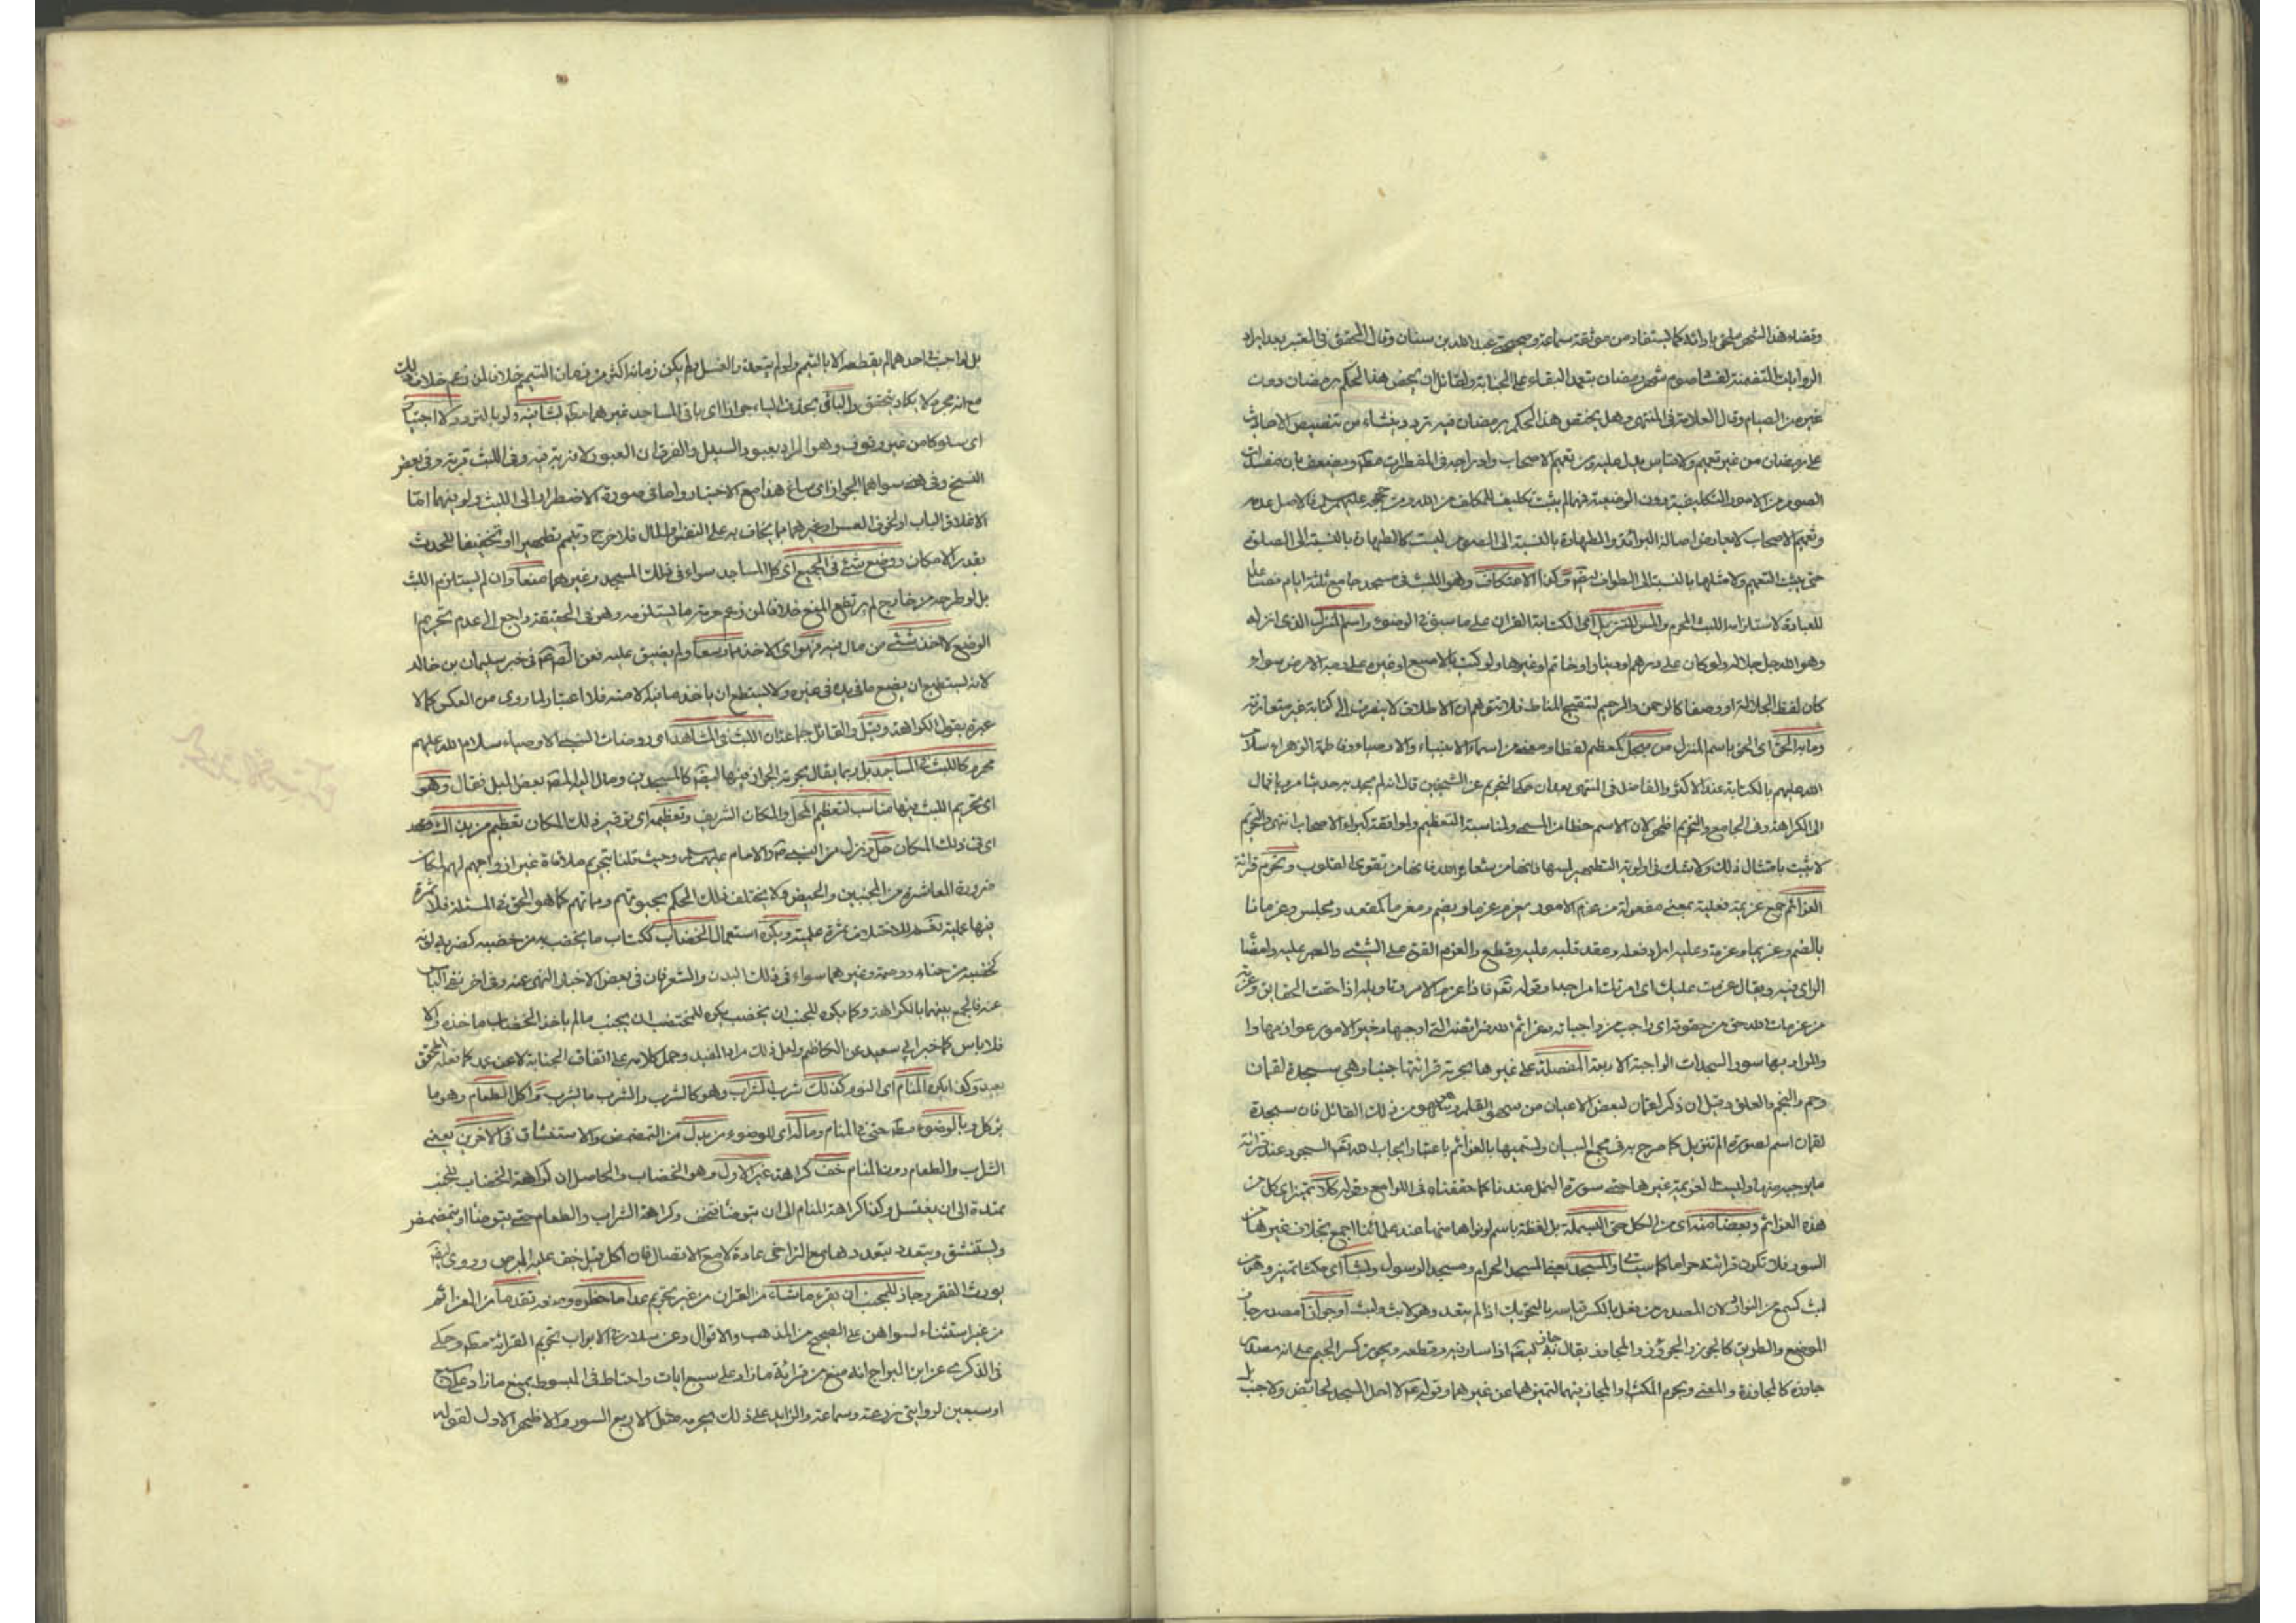 وقضاء هذا الشهر ملحق بادائه كما يستفاد من موثقة سماعة وصحيحة عبد الله بن سنان وقال المحقق في المعتبر بعد ايراد
الروايات المتضمنة لفساد صوم شهر رمضان بتعمد البقاء على الجنابة ولقائل ان يخص هذا الحكم برمضان دون
غيره من الصيام وقال العلامة في المنتهى وهل يختص هذا الحكم برمضان فيه تردد ينشاء من تنصيص الاحاديث
على رمضان من غير تعميم ولا قياس يدل عليه ومن تعميم الاصحاب وادراجه في المفطرات مطلقا ويضعف بان مفسدات
الصوم من الامور التكليفية دون الوضعية فما لم يثبت تكليف المكلف من الله ومن حججه عليهم السلام فالاصل عدمه
وتعميم الاصحاب لا يعارض اصالة البرائة والطهارة بالنسبة الى الصوم ليست كالطهارة بالنسبة الى الصلوة
حتى يثبت التعميم ولا مثلها بالنسبة الى الطواف ايضا وكذا الاعتكاف وهو اللبث في مسجد جامع ثلثة ايام فصاعدا
للعبادة لاستلزامه اللبث المحرم والمس للتنزيل اعني لكتابة القران على ما سبق في الوضوء واسم المنزل الذي انزله
وهو الله جل جلاله ولو كان على درهم او دينار او خاتم او غيرها ولو كتب بالاصبع او غيره على وجه الارض سواء
كان لفظ الجلالة او وصفا كالرحمن والرحيم لتنقيح المناط فلا يتوهم ان الاطلاق لا ينصرف الى كتابة غير متعارفة
وما به الحق اى الحق باسم المنزل من مبجل كمعظم لفظا ومعنى من اسماء الانبياء والاوصياء وفاطمة الزهراء سلام
الله عليهم بالكتابة عند الاكثر والفاضل في المنتهى بعد ان حكى التحريم عن الشيخين قال انه لم يجد به حديثا مرويا فمال
الى الكراهة وفي الجامع والتحريم اظهر لان الاسم حظا من المسمى ولمناسبة التعظيم ولموافقة كبراء الاصحاب انتهى والتحريم
لا يثبت بامثال ذلك ولا شك في اولوية التطهير لمسها فانها من شعاير الله فانها من تقوى القلوب وتحرم قرائة
العزائم جمع عزيمة فعيلة بمعنى مفعولة من عزم الامور يعزم عزما ويضم ومعزما كمقعد ومجلس وعزمانا
بالضم وعزيما وعزمة وعليه اراد فعله وعقد قلبه عليه وقطع والعزم القوة على الشيئ والصبر عليه وامضاء
الراى فيه ويقال عزمت عليك اى امرتك امرا جدا وقوله تعالى فاذا عزم الامر وتاويله اذا حقت الحقايق وعزمة
من عزمات الله حق من حقوقه اى واجب من واجباته وعزائم الله فرائضه التي اوجبها وخير الامور عوازمها
والمراد بها سور السجدات الواجبة الاربعة المفصلة على غيرها بحرمة قرائتها جنبا وهي سجدة لقمان
وحم والنجم والعلق وقيل ان ذكر لقمان لبعض الاعيان من سهو القلم وهو سهو من ذلك القائل فان سجدة
لقمان اسم لسورة الم تنزيل كما صرح به في مجمع البيان وتسميتها بالعزائم باعتبار ايجاب الله تعالى السجود عند قرائة
ما يوجبه منها وليست لعزيمة غيرها حتى سورة النمل عندنا كما حققناه في اللوامع وقوله كلا تميز اى كل من
هذه العزائم وبعضا منه اى من الكل حتى البسملة بل لفظة باسم لو نواها منها عند علمائنا اجمع بخلاف غيرها من
السور فلا تكون قرائته حراما كما سياتي والمسجدين المسجد الحرام ومسجد الرسول ولبثا اى مكثا تميز وهو من
لبث كسمع من النوادر لان المصدر من فعل بالكسر قياسه بالتحريك اذا لم يتعد وهو لابث ولبث او جوازا مصدر جاز
الموضع والطريق كالجوز والجؤوز والمجاوز يقال جاز به ايضا اذا سار فيه وقطعه ويجوز كسر الجيم على انه مصدر
جاوزه كالمجاوزة والمعنى ويحرم المكث او المجاز فيهما لتميزهما عن غيرهما وقوله لا احل المسجد لحائض ولا جنب
بل لو احنث احدهما لم يقطعه الا بالتيمم ولو لم يتعذر الغسل ولم يكن زمانه اكثر من زمان التيمم خلافا لمن زعم خلاف ذلك
مع انه محرم ولا يكاد يتحقق والباقي بحذف الياء جوازا اى باقي المساجد غيرهما مطلقا لبثا فيه ولو بالتردد ولا اجتياز
اى سلوكا من غير وقوف وهو المراد بعبور السبيل والفرق ان العبور لا قربة فيه وفي اللبث قربة وفي بعض
النسخ وفي سواهما الجواز اى ساغ هذا مع الاختيار واما في صورة الاضطرار الى اللبث ولو فيهما اما
لاغلاق الباب او لخوف العسس او غيرهما مما يخاف به على النفس والمال فلا حرج وتيمم تطهيرا او تخفيفا للحدث
بقدر الامكان ووضع شئ في الجميع اى كل المساجد سواء في ذلك المسجدين وغيرهما منعا وان لم يستلزم اللبث
بل لو طرحه من خارج لم يرتفع المنع خلافا لمن زعم حرمة ما يستلزمه وهو في الحقيقة راجع الى عدم تحريم
الوضع لا اخذ شئ من مال فيه فهو اى الاخذ مما وسعا ولم يضيق عليه فعن الصم في خبر سليمان بن خالد
لانه يستطيع ان يضع ما في يده في غيره ولا يستطيع ان ياخذ ما فيه الا منه فلا اعتبار لما روى من العكس كما لا
عبرة بقول الكراهة وقيل والقائل جماعة ان اللبث في المشاهد اى روضات النبي والاوصياء سلام الله عليهم
محرم كاللبث في المساجد بل ربما يقال بحرمة الجواز فيها ايضا كالمسجدين ومال اليه المصنف بعض الميل فقال وهو
اى تحريم اللبث فيها مناسب لتعظيم المحل والمكان الشريف وتعظيمه اى توقير ذلك المكان تعظيم من بذلك
اى في ذلك المكان حل ونزل من النبي ص والامام عليهم السلام وحيث قلنا بتحريم ملاقاة غير ازواجهم لهم لمكان
ضرورة المعاشرة من المجنبين والحيض ولا يختلف ذلك الحكم بحيوتهم ومماتهم كما هو الحق في المسئلة فلا ثمرة
فيها عملية نعم للاختلاف ثمرة علمية ويكره استعمال الخضاب ككتاب ما يخضب به من خضبه كضربه لونه
كخضبه من حناء ووسمة وغيرهما سواء في ذلك البدن والشعر فان في بعض الاخبار النهي عنه وفي اخر نفى الباس
عنه فالجمع بينهما بالكراهة وكما يكره للجنب ان يخضب يكره للمختضب ان يجنب ما لم ياخذ الخضاب ماخذه والا
فلا باس كما خبر ابي سعيد عن الكاظم ولعل ذلك مراد المفيد وحمل كلامه على اتفاق الجنابة لا عن عمد كما فعله المحقق
بعيد وكذا يكره المنام اى النوم وكذلك شرب الشراب وهو كالشرب والشرب ما يشرب واكل الطعام وهو ما
يؤكل وبالوضوء مطلقا حتى في المنام وماله اى للوضوء من بدل من التمضمض والاستنشاق في الاخرين يعني
الشراب والطعام دون المنام خف كراهة غير الاول وهو الخضاب والحاصل ان كراهة الخضاب للجنب
ممتدة الى ان يغتسل وكذا كراهة المنام الى ان يتوضأ فتخف وكراهة الشراب والطعام حتى يتوضأ او يتمضمض
ويستنشق ويتعدد بتعددهما مع التراخي عادة لا مع الاتصال فان اكل قبل خيف عليه البرص وروى ايضا
يورث الفقر وجاز للمجنب ان يقرء ما شاء من القران من غير تحريم عدا ما حظره ومنعه تقدما من العزائم
من غير استثناء لسواهن على الصحيح من المذهب والاقوال وعن سلار في الابواب تحريم القرائة مطلقا وحكى
في الذكرى عن ابن البراج انه منع من قرائة ما زاد على سبع ايات واحتاط في المبسوط بمنع ما زاد على سبع
او سبعين لروايتي زرعة وسماعة والزايد على ذلك يحرمه مثل الاربع السور والاظهر الاول لقوله